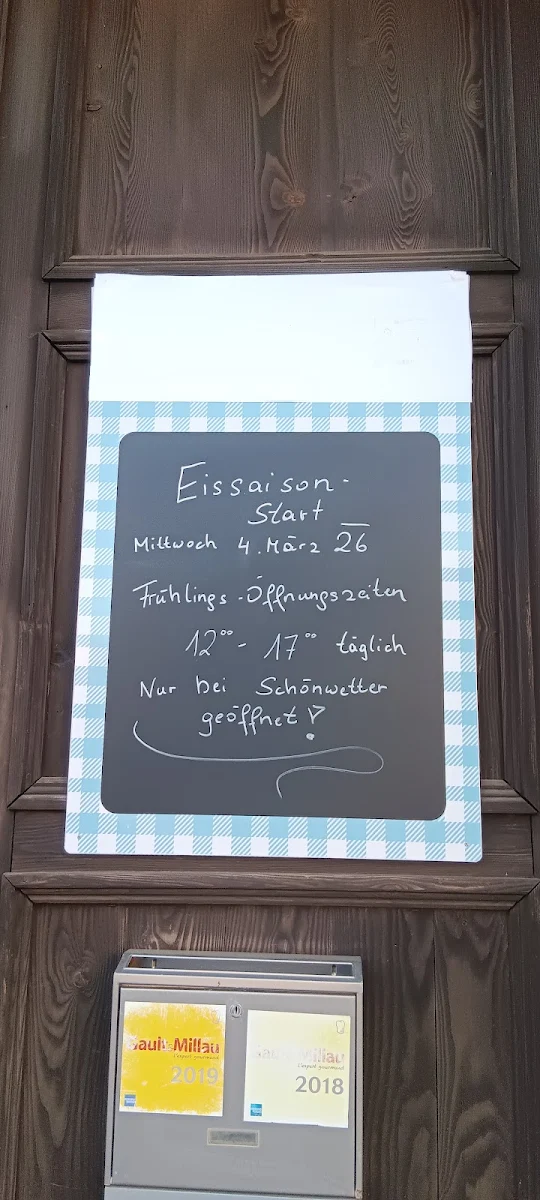 Eissaison-
Start
Mittwoch 4. März 26
Frühlings-Öffnungszeiten
12°° - 17°° täglich
Nur bei Schönwetter
geöffnet!
Gault&Millau
l'expert gourmand
2019
Gault&Millau
l'expert gourmand
2018